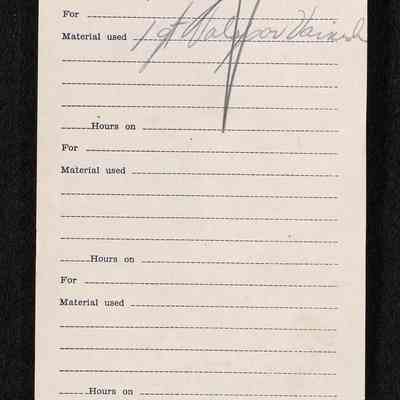 For
Material used 1 qt Valspar Varnish
Hours on
For
Material used
Hours on
For
Material used
Hours on